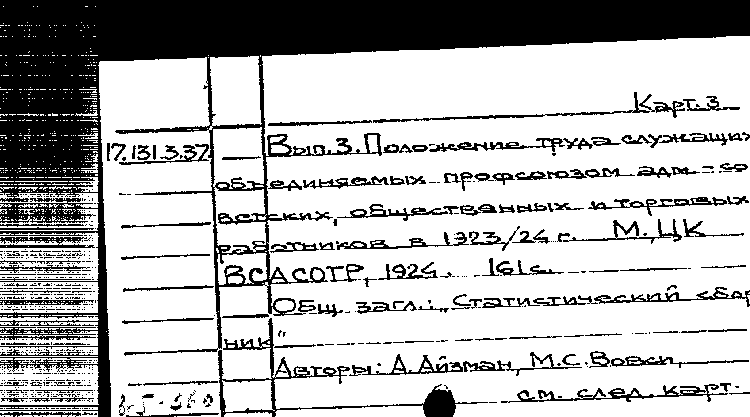 Карт. 3
17.131.3.37 Вып. 3. Положение труда служащих
объединяемых профсоюзом адм.-со
ветских, общественных и торговых
работников в 1923/24 г. М., ЦК
ВСАСОТР, 1924. 161 с.
Общ. загл.: „Статистический сбор
ник“
Авторы: А. Айзман, М.С. Вовси,
см. след. карт.